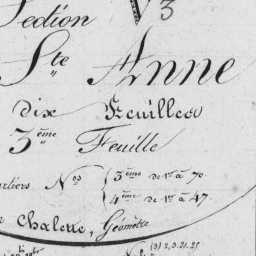 Section V3
Ste Anne
dix Feuilles
3ème Feuille
Nos 3ème de 1 à 70
4ème de 1 à 47
Chalette, Géomètre
(3) 2.3.21.25